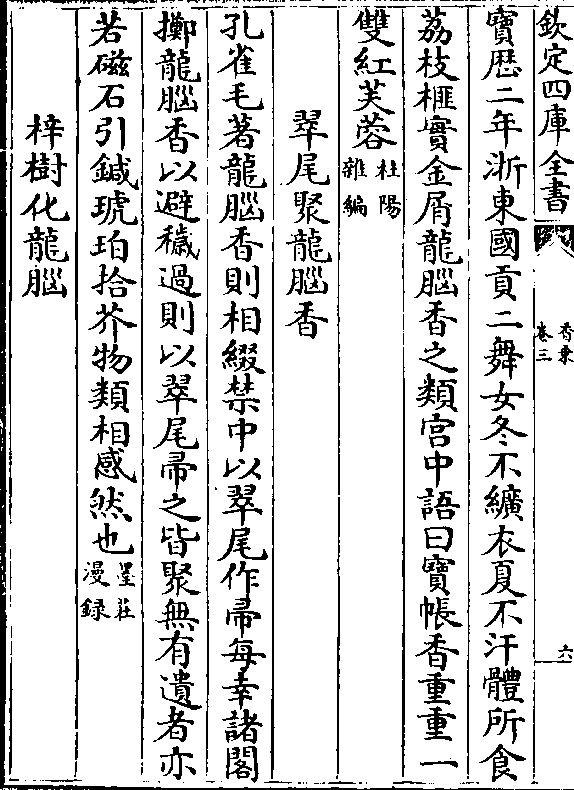 欽定四庫全書
香乗
卷三
六
寳厯二年浙東國貢二舞女冬不纊衣夏不汗體所食
荔枝榧實金屑龍腦香之類宫中語曰寳帳香重重一
雙紅芙蓉
杜陽
雜編
翠尾聚龍腦香
孔雀毛著龍腦香則相綴禁中以翠尾作帚每幸諸閣
擲龍腦香以避穢過則以翠尾帚之皆聚無有遺者亦
若磁石引鍼琥珀拾芥物類相感然也
墨莊
漫録
梓樹化龍腦